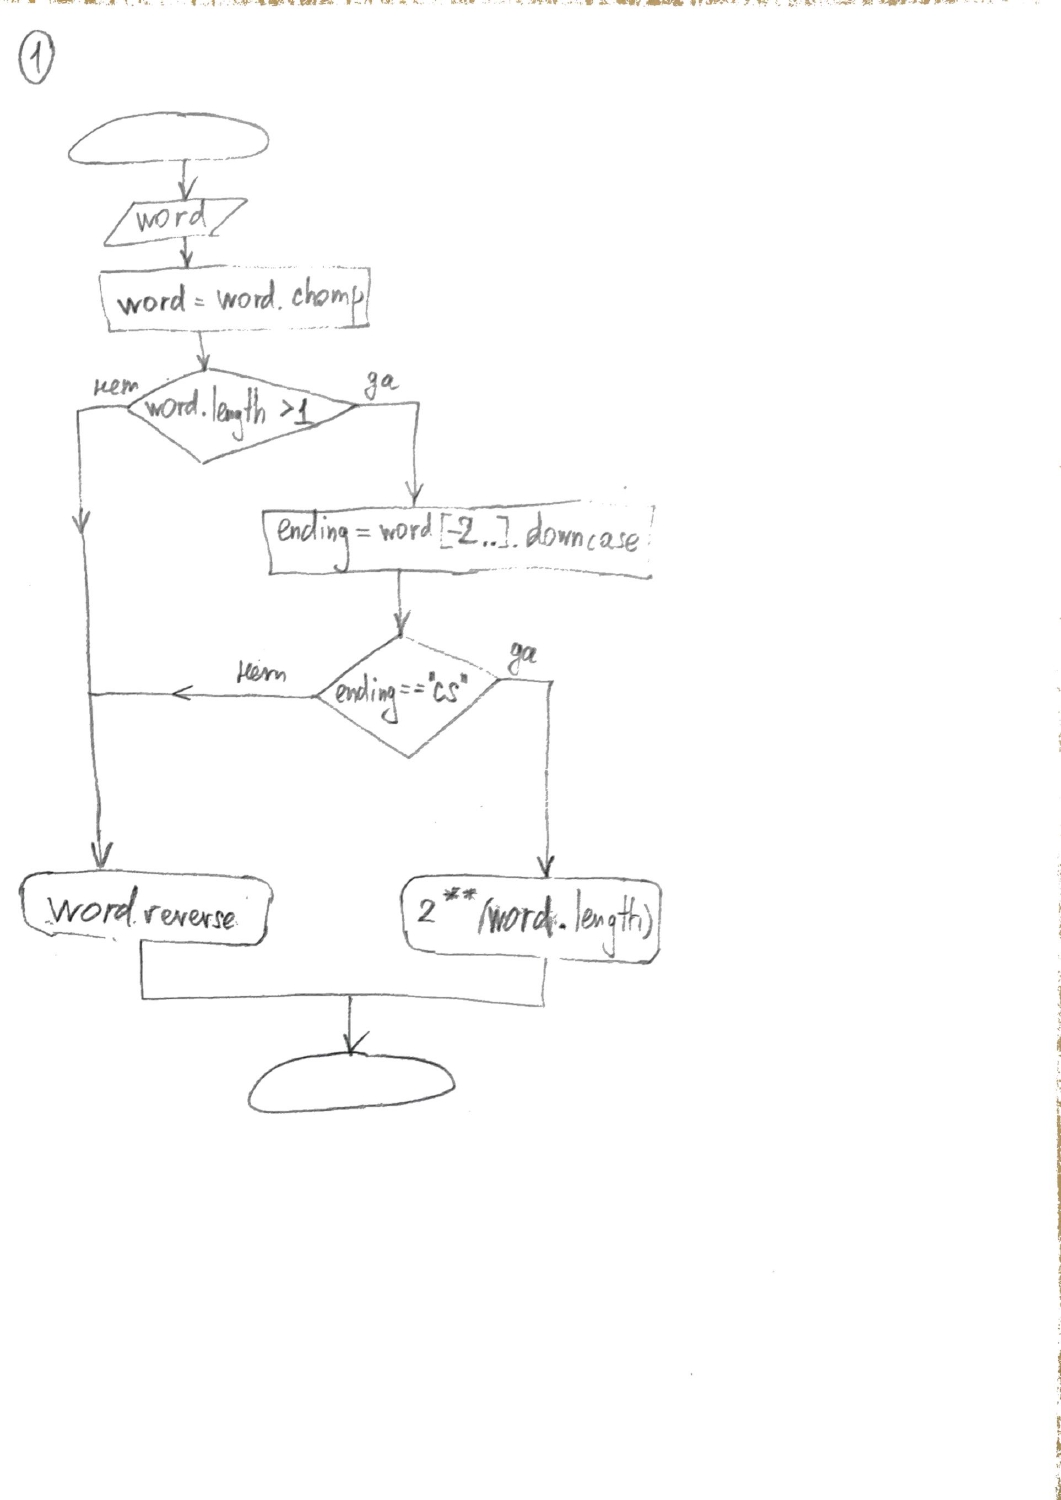 1
word
word = word.chomp
нет
да
word.length >1
ending = word[-2..].downcase
нет
да
ending=="cs"
word.reverse
2**(word.length)